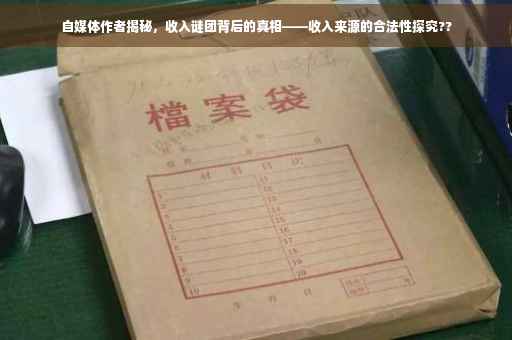 自媒体作者揭秘，收入谜团背后的真相——收入来源的合法性探究??
檔案袋
材料目次
1 11
2 12
3 13
4 14
5 15
6 16
7 17
8 18
9 19
10 20
年 月 日